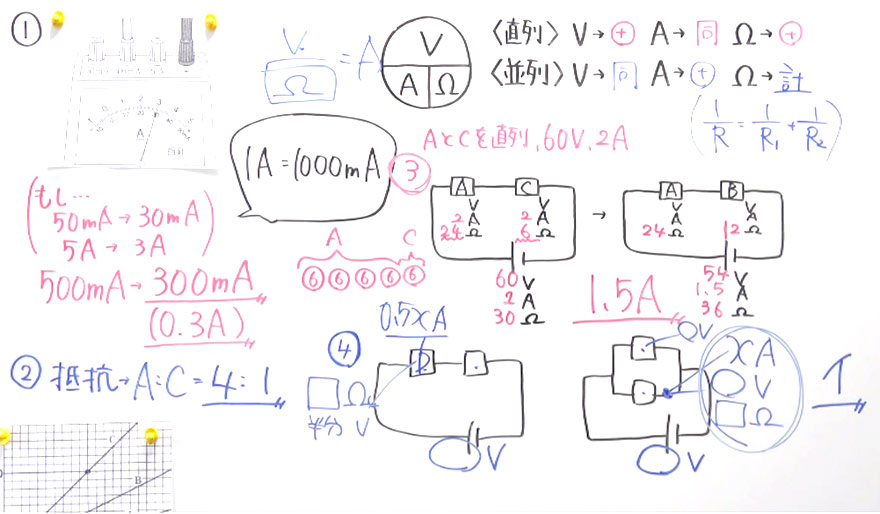 ①
V/Ω = A
V
A Ω
〈直列〉 V→⊕ A→同 Ω→⊕
〈並列〉 V→同 A→⊕ Ω→計
(1/R = 1/R₁ + 1/R₂)
1A=1000mA
もし…
50mA→30mA
5A→3A
500mA→300mA
(0.3A)
③ AとCを直列、60V、2A
A C
⑥⑥⑥⑥⑥
A C
V V
2 A 2 A
24 Ω 6 Ω
60 V
2 A
30 Ω
→
A B
V V
A A
24 Ω 12 Ω
54 V
1.5 A
36 Ω
1.5A
② 抵抗→A:C=4:1
C
B
④
0.5xA
□Ω
半分 V
○V
○V
xA
○V
□Ω
○V